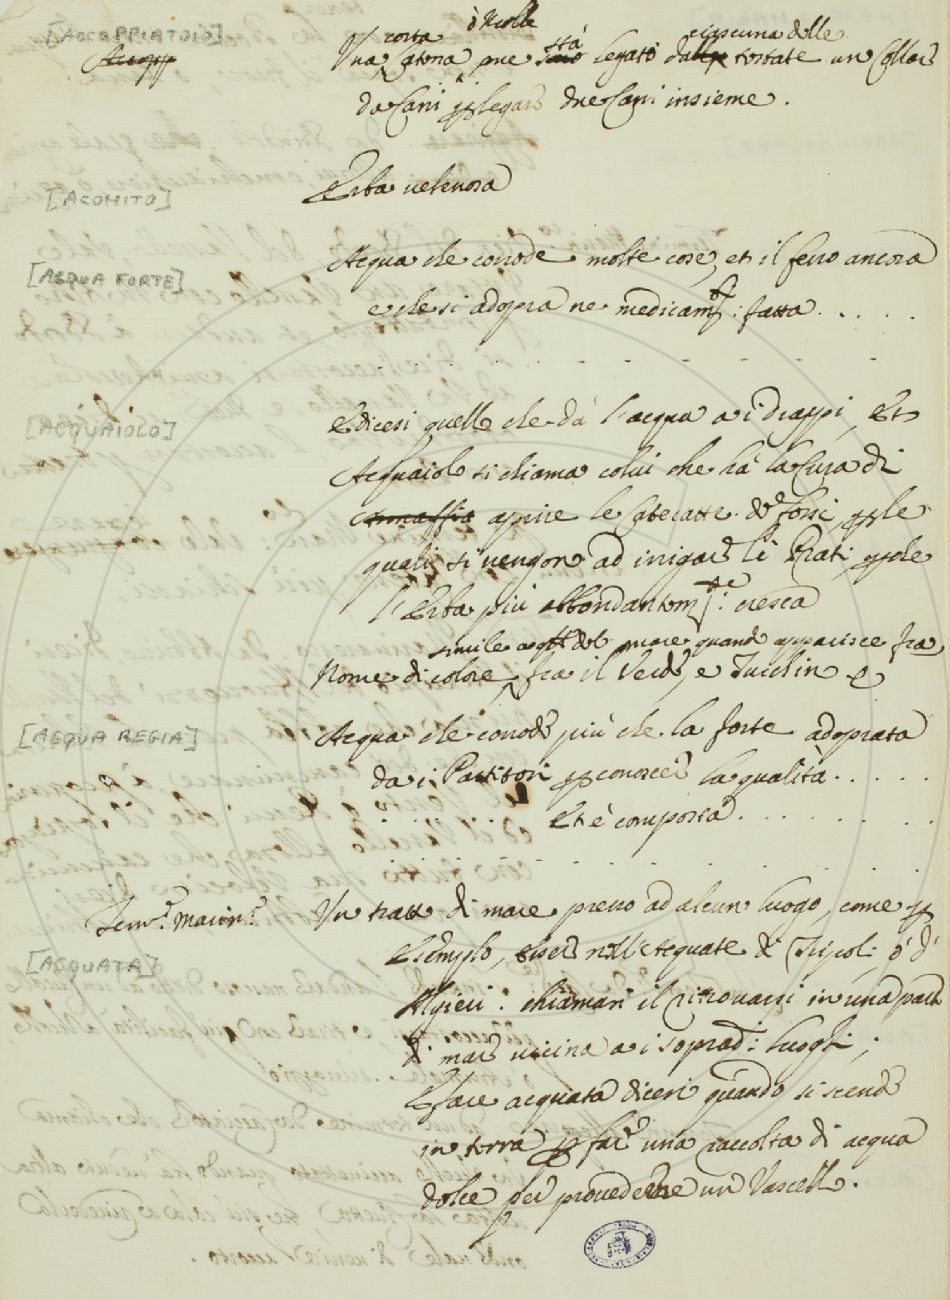 [ACCOPPIATOIO]
corta ò Molle
Una Catena, ove stà legato ciascuna delle testate un Collare
da Cani p legare due Cani insieme.
[ACONITO]
Erba velenosa
[ACQUA FORTE]
Acqua che corrode molte cose, et il ferro ancora
e che si adopra ne medicamti: fatta . . . . .
[ACQUAIOLO]
E dicesi quello che dà l'acqua a i drappi, Et
Acquaiolo si chiama colui che hà la Cura di
annaffia aprire le Cateratte de' fossi p le
quali si vengon ad inrigare li Prati, p che
l'Erba più abbondantemte: cresca
simile a qllo del mare quando apparisce fra
Nome di colore, fra il Verde, e Turchino
[ACQUA REGIA]
Acqua che corrode più che la forte adoprata
da i Partitori p conoscere la qualità . . . . .
Et è composta . . . . . .
Term.e Marin.o
Un tratto di mare presso ad alcun luogo, come p
[ACQUATA]
Esempio, esser nell'Acquate di Tripoli ò d'
Algieri: chiamasi il ritrovarsi in una parte
di mare vicina a i sopradi: luoghi;
E fare acquata dicesi quando si scende
in terra p fare una raccolta di acqua
dolce per provedere un Vascello.